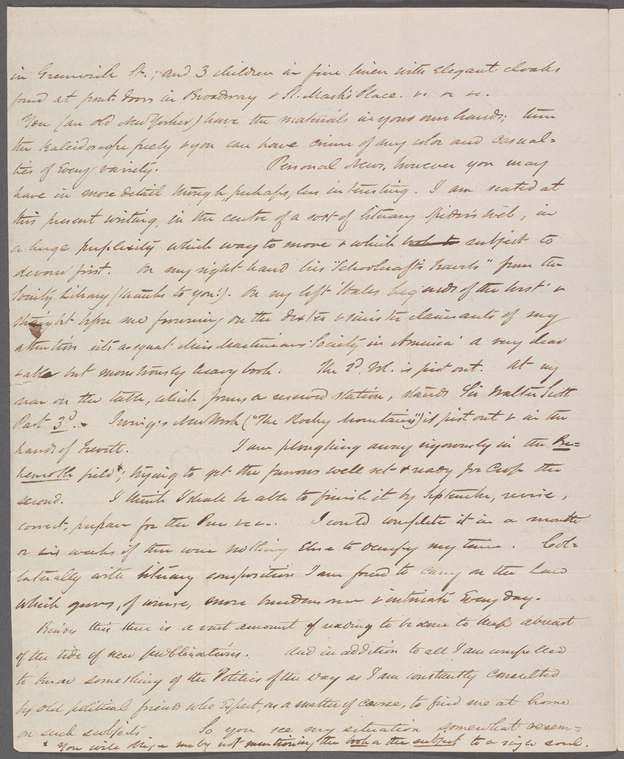 in Greenwich St.; and 3 children in fine linen with elegant cloaks
found at front doors in Broadway & St. Mark's Place. &c or &c.
You (an old New Yorker) have the materials in your own hands: turn
the kaleidoscope freely & you can have crime of any color and casual=
ties of every variety. Personal News, however you may
have in more detail though, perhaps, less interesting. I am seated at
this present writing, in the centre of a sort of literary Spider's web, in
a huge perplexity which way to move & which subject to
devour first. On my right hand lies "Schoolcraft's Travels" from the
Society Library (thanks to you!). On my left Wales Legends of the West: &
straight before me frowning on the dexter & sinister claimants of my
attention sits asquat Miss Martineau's Society in America: a very clear
& able but monstrously heavy book. The 2d. Vol. is just out. At my
rear on the table, which forms a reserved station, stands Sir Walter Scott
Part 3d. Irving's New Work ("The Rocky Mountains") is just out & in the
hands of
I am ploughing away vigorously in the Be=
hemoth field*; trying to get the furrows well set & ready for Crop the
second. I think I shall be able to finish it by September, revise,
correct, prepare for the Press &c &c. I could complete it in a month
or six weeks if there were nothing else to occupy my time. Col=
laterally with literary composition I am forced to carry on the Law
which grows, of course, more burdensome & intricate every day.
Besides this there is a vast amount of reading to be done to keep abreast
of the tide of new publications. And in addition to all I am compelled
to know something of the Politics of the day as I am constantly consulted
by old political friends who expect, as a matter of course, to find me at home
on such subjects. So you see my situation somewhat resem=
* You will oblige me by not mentioning the book or the subject to a single soul.